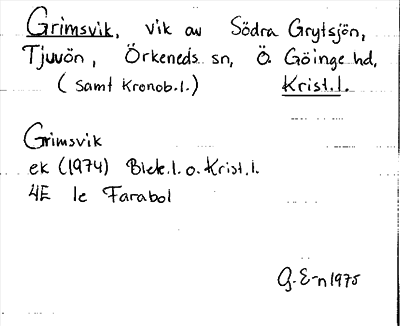 Grimsvik, vik av Södra Grytsjön,
Tjuvön, Örkeneds sn, Ö. Göinge hd,
(samt Kronob.l.) Krist.l.
Grimsvik
ek (1974) Blek.l. o. Krist.l.
4E 1e Farabol
G. E-n 1975